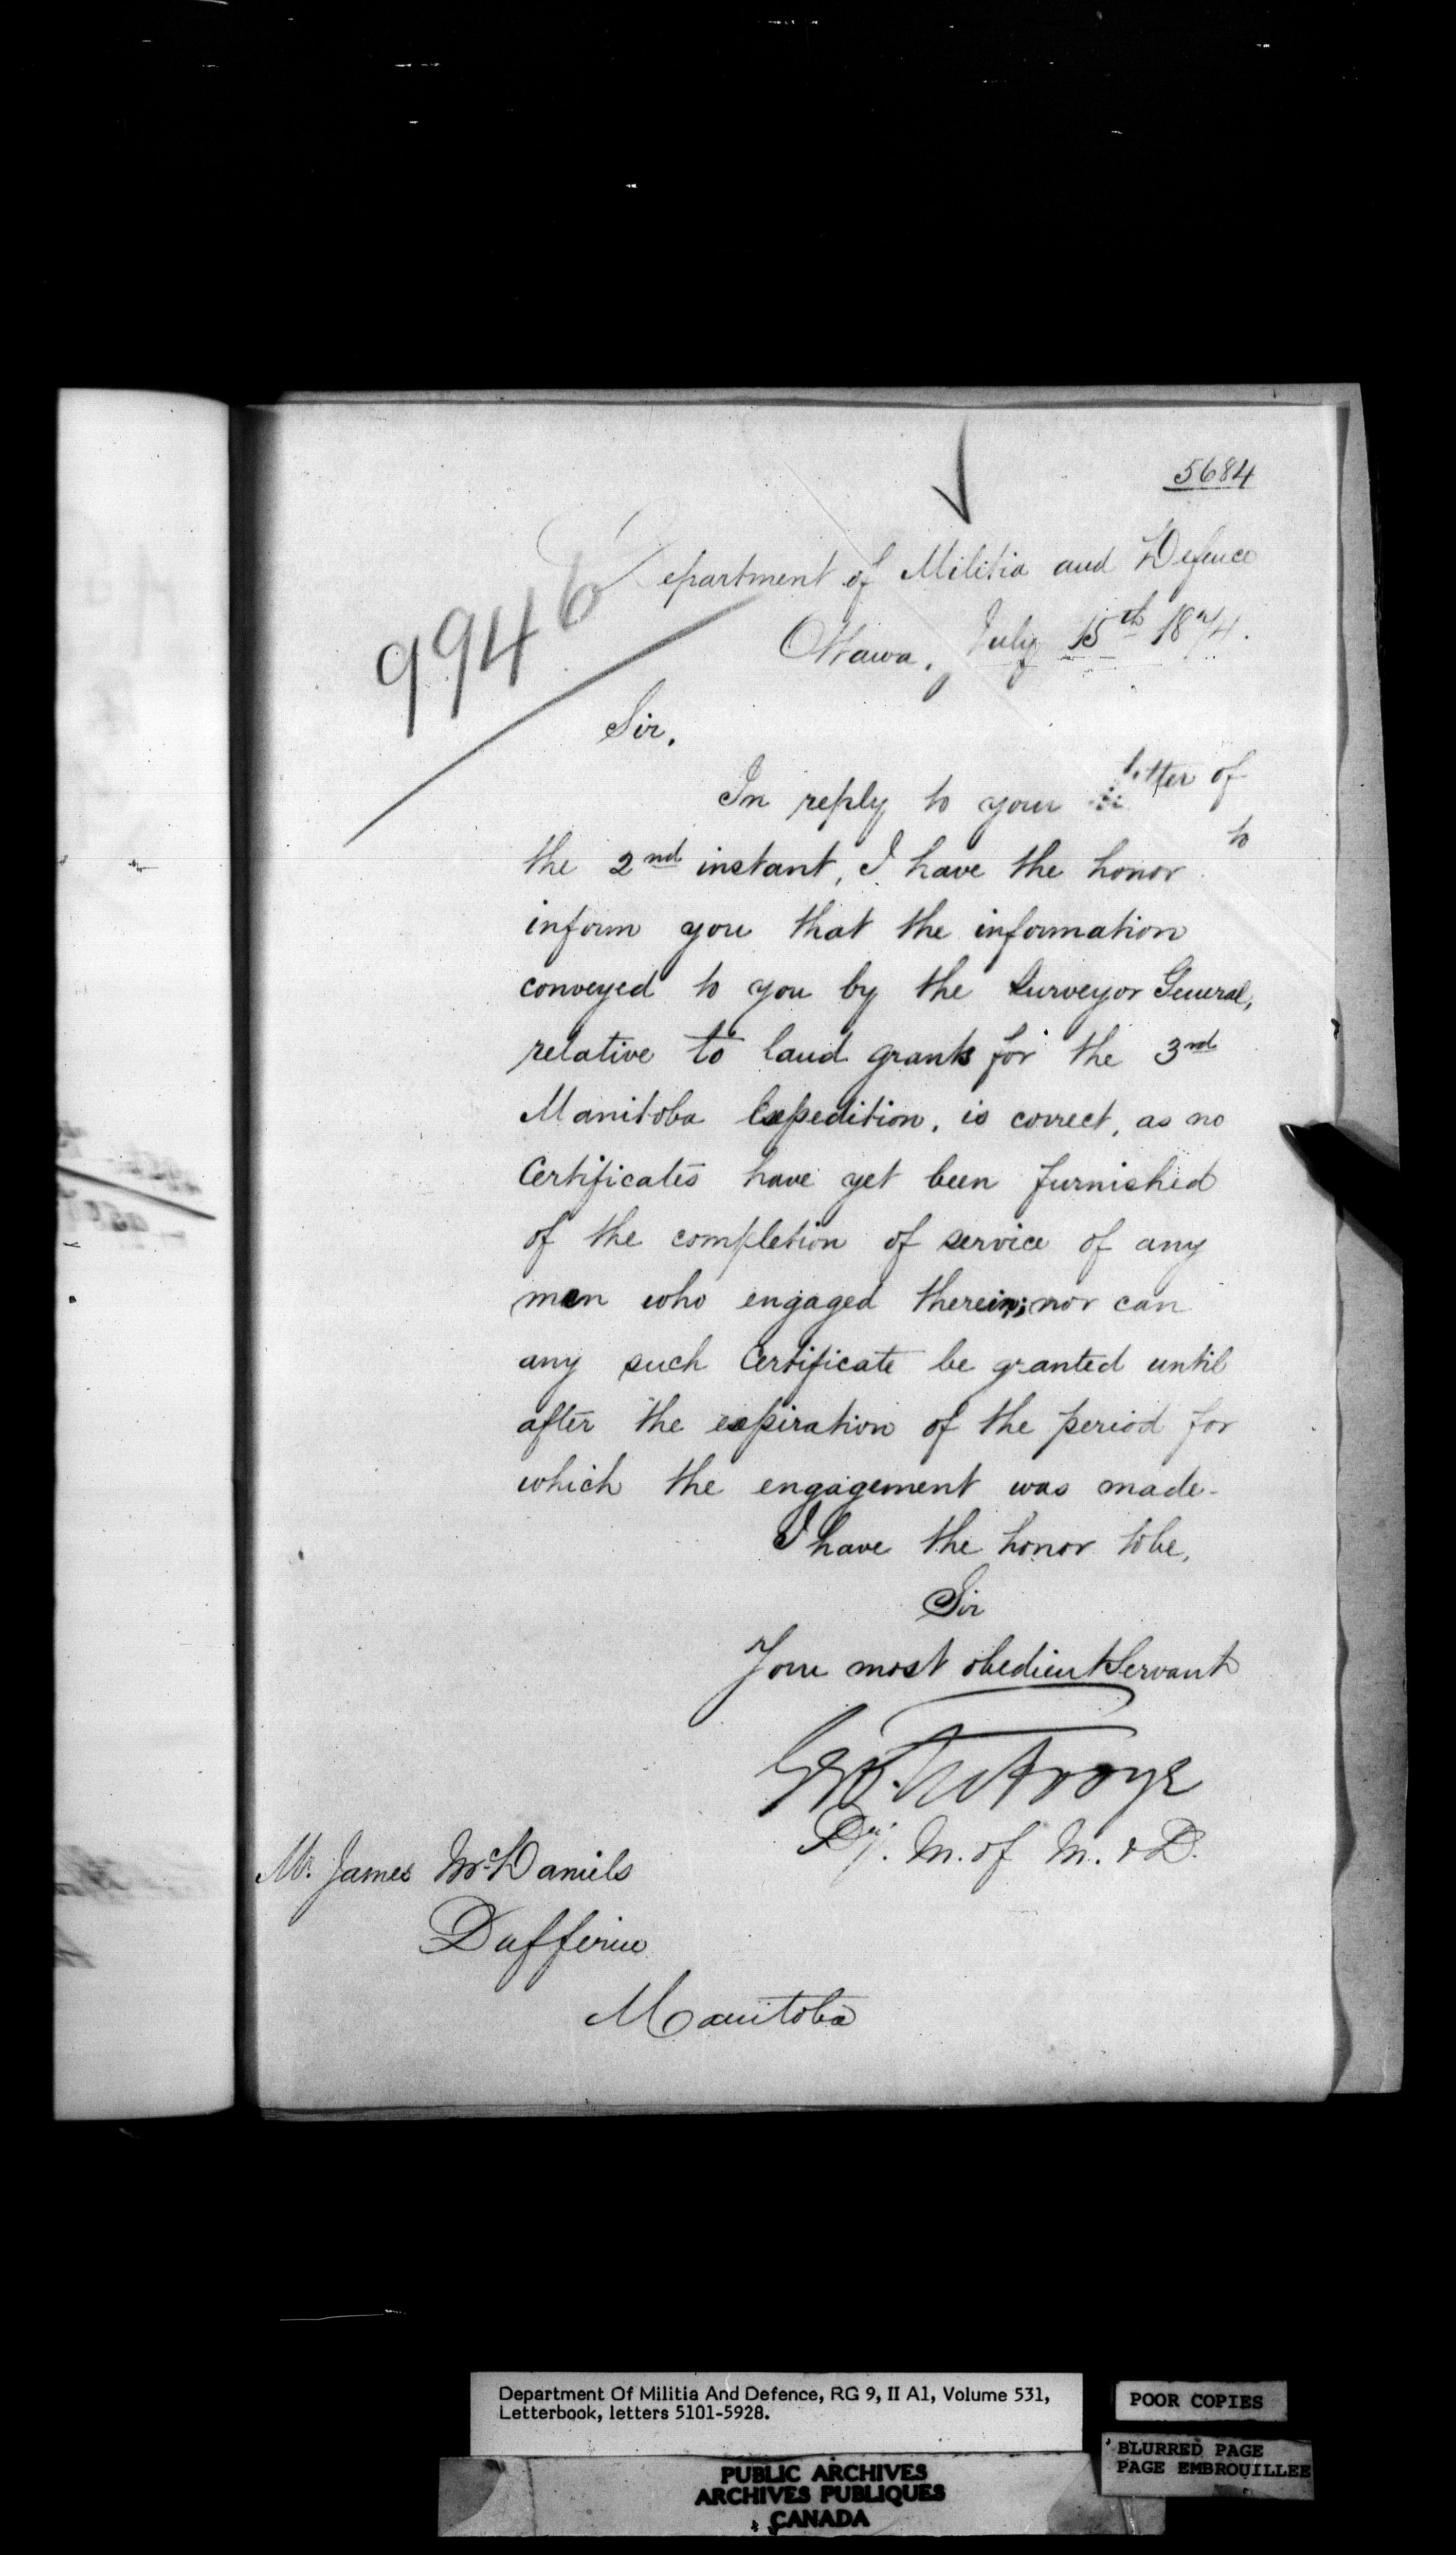 5684
9946
Department of Militia and Defence
Ottawa, July 15th 1874.
Sir,
In reply to your letter of
the 2nd instant, I have the honor to
inform you that the information
conveyed to you by the Surveyor General,
relative to land grants for the 3rd
Manitoba Expedition, is correct, as no
Certificates have yet been furnished
of the completion of service of any
men who engaged therein; nor can
any such Certificate be granted until
after the expiration of the period for
which the engagement was made-
I have the honor to be,
Sir
Your most obedient Servant
Dy. M. of M. & D.
Mr. James McDaniels
Dufferin
Manitoba
Department Of Militia And Defence, RG 9, II A1, Volume 531,
Letterbook, letters 5101-5928.
POOR COPIES
BLURRED PAGE
PAGE EMBROUILLEE
PUBLIC ARCHIVES
ARCHIVES PUBLIQUES
CANADA